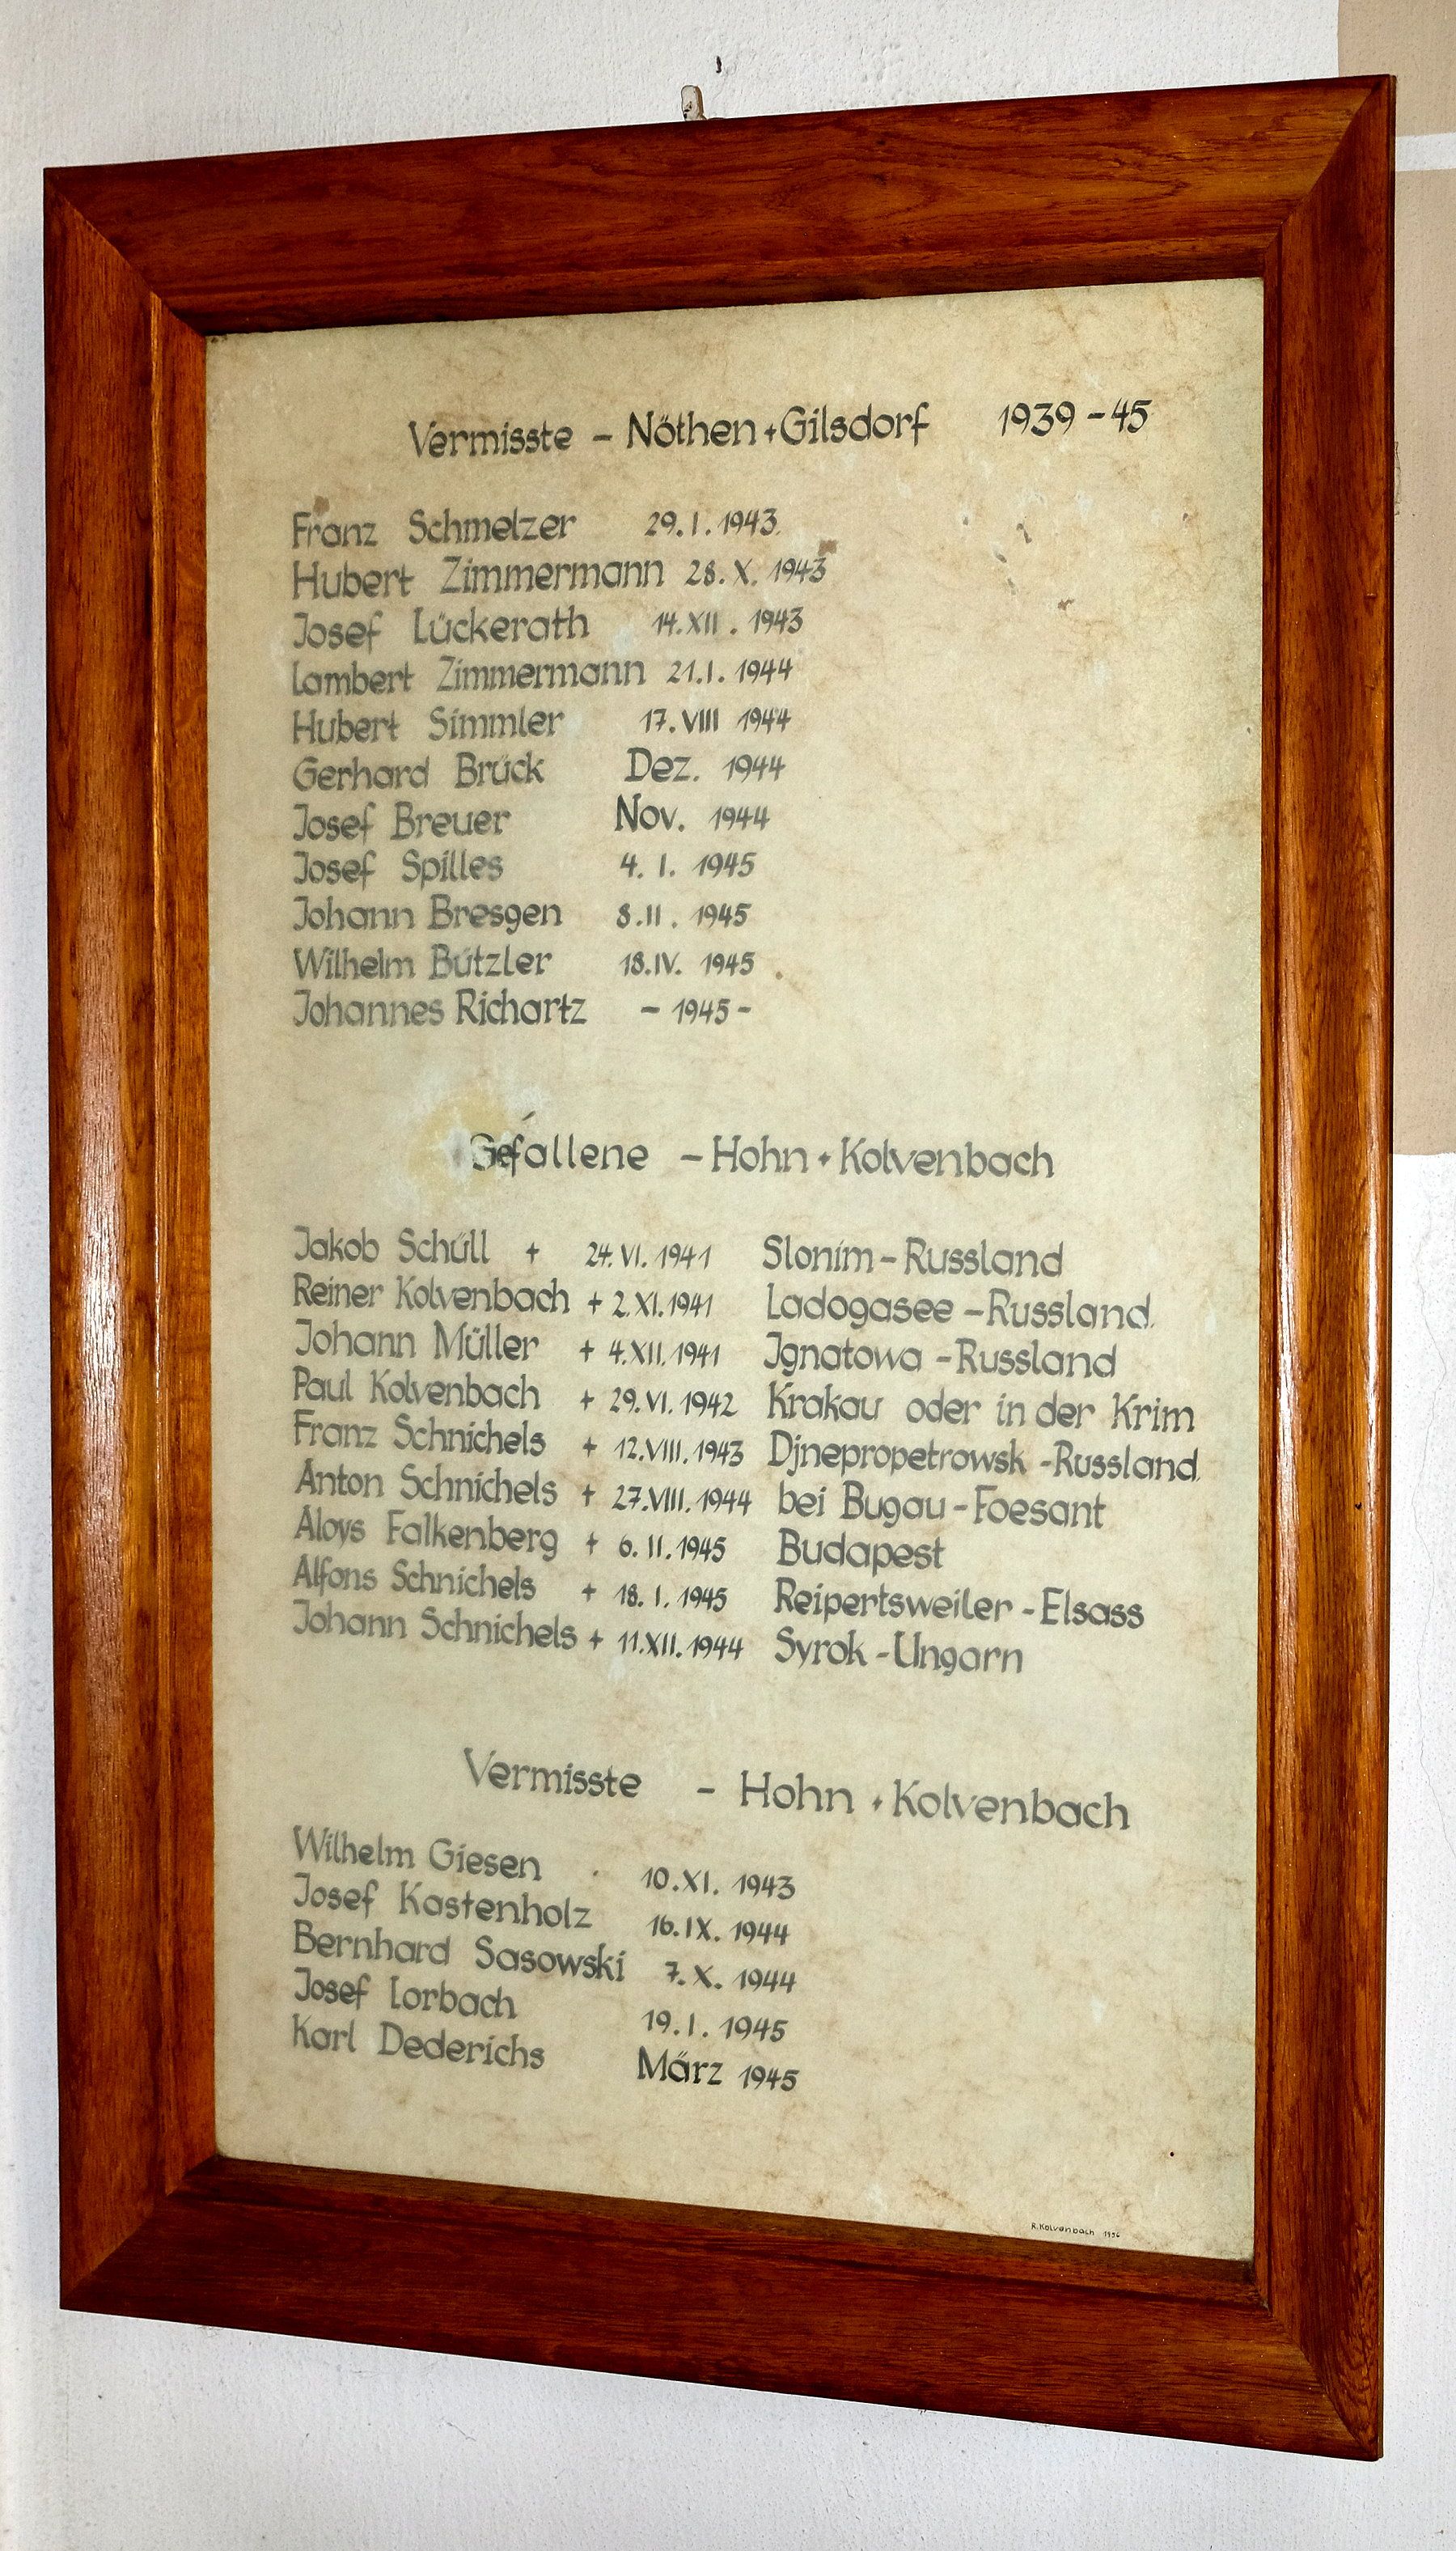 Vermisste - Nöthen + Gilsdorf 1939 - 45
Franz Schmelzer 29. I. 1943.
Hubert Zimmermann 28. X. 1943
Josef Lückerath 14. XII. 1943
Lambert Zimmermann 21. I. 1944
Hubert Simmler 17. VIII 1944
Gerhard Brück Dez. 1944
Josef Breuer Nov. 1944
Josef Spilles 4. I. 1945
Johann Bresgen 8. II. 1945
Wilhelm Bützler 18. IV. 1945
Johannes Richartz - 1945 -
Gefallene - Hohn + Kolvenbach
Jakob Schüll + 24. VI. 1941 Slonim - Russland
Reiner Kolvenbach + 2. XI. 1941 Ladogasee - Russland.
Johann Müller + 4. XII. 1941 Ignatowa - Russland
Paul Kolvenbach + 29. VI. 1942 Krakau oder in der Krim
Franz Schnichels + 12. VIII. 1943 Djnepropetrowsk - Russland.
Anton Schnichels + 27. VIII. 1944 bei Bugau - Foesant
Aloys Falkenberg + 6. II. 1945 Budapest
Alfons Schnichels + 18. I. 1945 Reipertsweiler - Elsass
Johann Schnichels + 11. XII. 1944 Syrok - Ungarn
Vermisste - Hohn + Kolvenbach
Wilhelm Giesen 10. XI. 1943
Josef Kastenholz 16. IX. 1944
Bernhard Sasowski 7. X. 1944
Josef Lorbach 19. I. 1945
Karl Dederichs März 1945
R. Kolvenbach